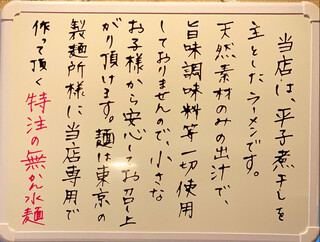 当店は、平子煮干しを
主としたラーメンです。
天然素材のみの出汁で、
旨味調味料等一切使用
しておりませんので、小さな
お子様から安心してお召し上
がり頂けます。麺は東京の
製麺所様に当店専用で
作って頂く特注の無かん水麺